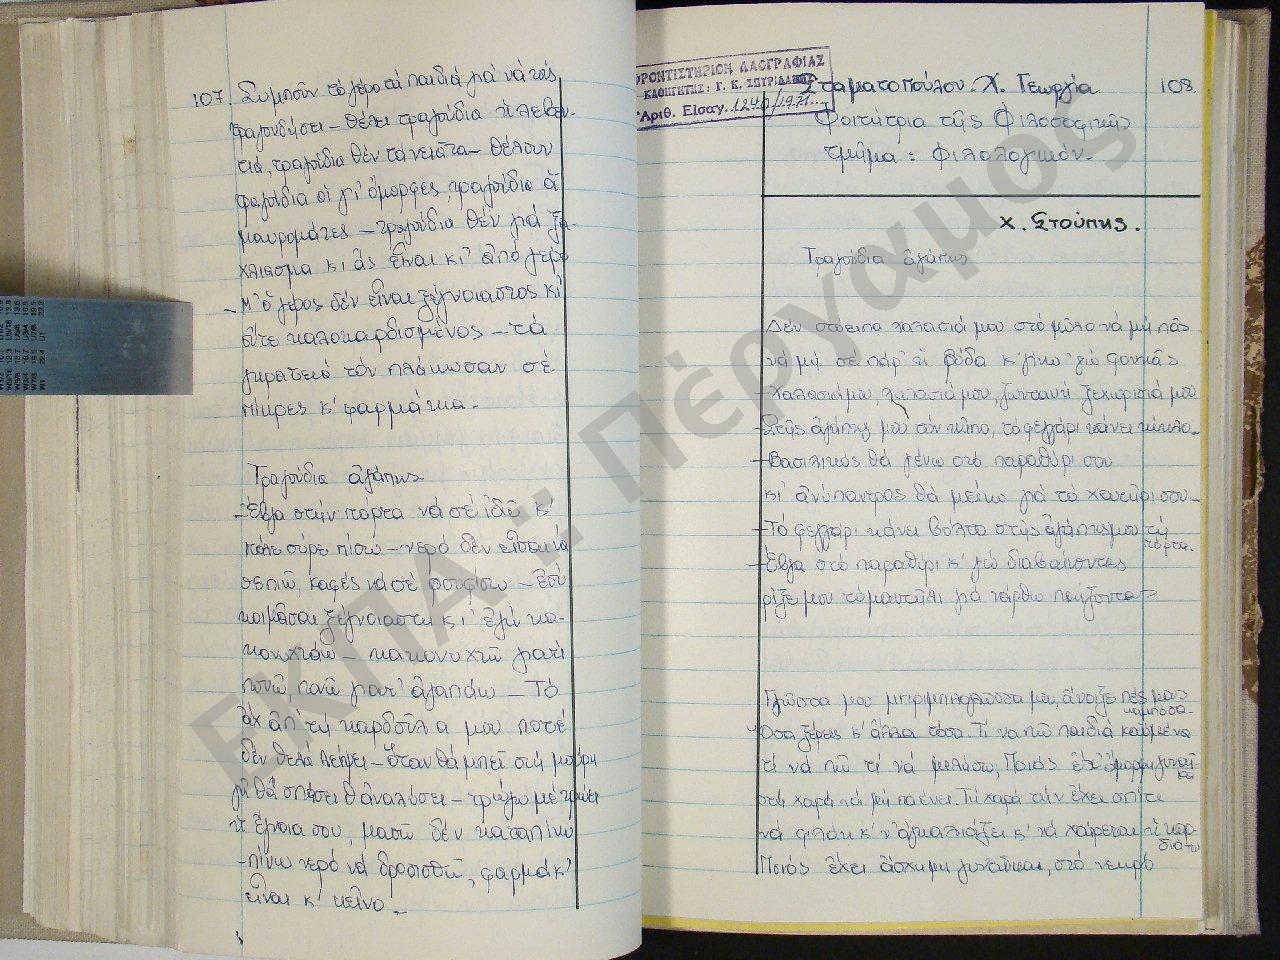 107. Συμποῦν τό γέρο τά παιδιά γιά νά τούς
τραγουδήσει – θέλει τραγούδια ἡ λεβεν-
τιά, τραγούδια θέν τά νειᾶτα – θέλουν
τραγούδια οἱ γι' ὄμορφες, τραγούδια οἱ
μαυρομάτες – τραγούδια θέν γιά ξε-
χλιασμα κι ἄς εἶναι κι' ἀπό γέρο
– Μ' ὁ γέρος δέν εἶναι ξέγνοιαστος κι'
οὔτε καλοκαρδισμένος – τά
γηρατειά τόν πλάκωσαν σέ
πίκρες κ' φαρμάκια.
Τραγούδια ἀγάπης
– Ἔβγα στήν πόρτα νά σέ ἰδῶ κ'
πάλε σύρε πίσω – νερό δέν εἶσαι νά
σέ πιῶ, καφές νά σέ ρουφίσω – ἐσύ
κοιμᾶσαι ξέγνοιαστη κι' ἐγώ κα-
κονυχτάω – κακονυχτῶ γιατί
πονῶ, πονῶ γιατ' ἀγαπάω – Τό
ἄχ ἀπ' τή καρδοῦλα μου ποτέ
δέν θελά λείψει – Ὅταν θά μπεῖ στή μαύρη
γῆ θά σαπίσει θ' ἀναλύσει – τρώγω μέ τρώει
ἡ ἔγνοια σου, μασῶ δέν καταπίνω
– πίνω νερό νά δροσισθῶ, φαρμάκ'
εἶναι κ' κεῖνο –
ΦΡΟΝΤΙΣΤΗΡΙΟΝ ΛΑΟΓΡΑΦΙΑΣ
ΚΑΘΗΓΗΤΗΣ: Γ. Κ. ΣΠΥΡΙΔΑΚΗΣ
Ἀριθ. Εἰσαγ. 1240/1971
Σταματοπούλου. Χ. Γεωργία
108.
Φοιτήτρια τῆς Φιλοσοφικῆς
τμῆμα: Φιλολογικόν.
Χ. Στούπης.
Τραγούδια ἀγάπης
Δέν στόειπα χαλασιά μου στό μύλο νά μή πᾶς
νά μή σέ πάρ' ἡ ρόδα κ' γίνω 'γώ φονιᾶς
– Χαλασιά μου, χαλασιά μου, ζωντανή ξεχωρισιά μου
– Στῆς ἀγάπης μου τόν κῆπο, τό φεγγάρι κάνει κύκλο –
– Βασιλικός θά γένω στό παραθύρι σου
κι' ἀνύπαντρος θά μείνω γιά τό χατῆρι σου –
– Τό φεγγάρι κάνει βόλτα στῆς ἀγάπης μου τή
πόρτα.
– Ἔβγα στό παραθύρι κ' 'γώ διαβαίνοντας
ρίξε μου τό μαντῆλι γιά νάρθω παίζοντας
Γλῶσσα μου μπιρμπιλογλῶσσα μου, ἄνοιξε πές μας
καμπόσα.
Ὅσα ξέρεις κ' ἄλλα τόσα. Τί νά πῶ παιδιά καϋμένα
τί νά πῶ τί νά μιλήσω, Ποιός ἔχ' ὄμορφη γυναῖ-
κα
στή χαρά νά μή παένει. Τή χαρά τήν ἔχει σπίτι
νά φιλάει κ' ν' ἀγκαλιάζει κ' νά χαίρεται ἡ καρ-
διά του
Ποιός ἔχει ἄσχημη γυναῖκα, στό νεκρό
ΕΚΠΑ :: Πέργαμος